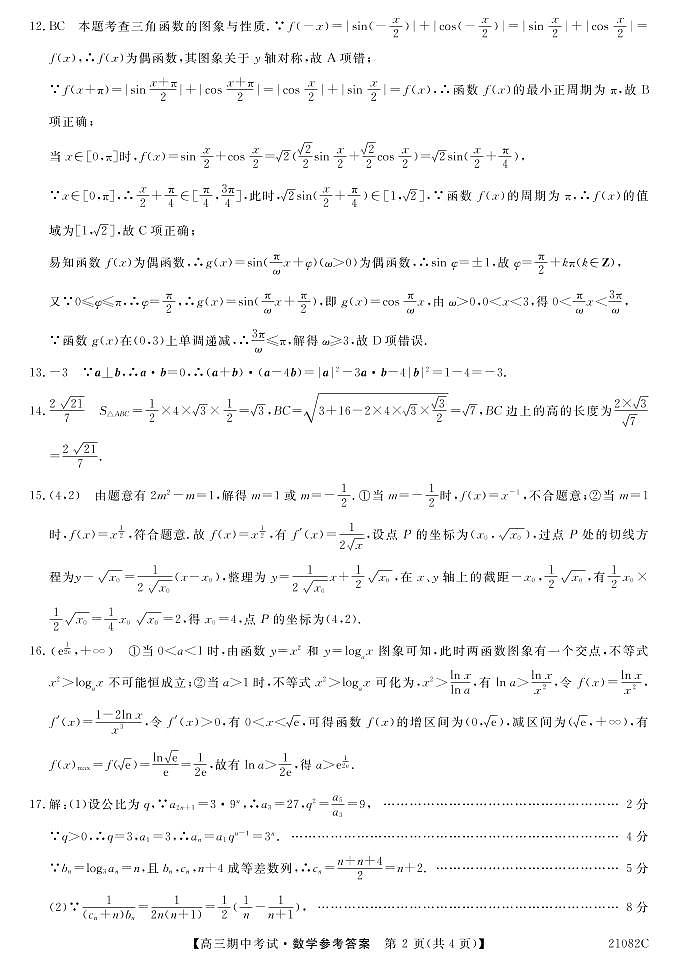 12. BC 本题考查三角函数的图象与性质.∵f(-x)=|sin(-x/2)|+|cos(-x/2)|=|sin x/2|+|cos x/2|=
f(x),∴f(x)为偶函数,其图象关于y轴对称,故A项错;
∵f(x+π)=|sin (x+π)/2|+|cos (x+π)/2|=|cos x/2|+|sin x/2|=f(x),∴函数f(x)的最小正周期为π,故B
项正确;
当x∈[0,π]时,f(x)=sin x/2+cos x/2=√2(√2/2 sin x/2+√2/2 cos x/2)=√2sin(x/2+π/4),
∵x∈[0,π],∴x/2+π/4∈[π/4,3π/4],此时,√2sin(x/2+π/4)∈[1,√2],∵函数f(x)的周期为π,∴f(x)的值
域为[1,√2],故C项正确;
易知函数f(x)为偶函数,∴g(x)=sin(π/ω x+φ)(ω>0)为偶函数,∴sin φ=±1,故φ=π/2+kπ(k∈Z),
又∵0≤φ≤π,∴φ=π/2,∴g(x)=sin(π/ω x+π/2),即g(x)=cos π/ω x,由ω>0,0<x<3,得0<π/ω x<3π/ω,
∵函数g(x)在(0,3)上单调递减,∴3π/ω≤π,解得ω≥3,故D项错误.
13. -3 ∵a⊥b,∴a·b=0,∴(a+b)·(a-4b)=|a|²-3a·b-4|b|²=1-4=-3.
14. 2√21/7 S△ABC=1/2×4×√3×1/2=√3,BC=√(3+16-2×4×√3×√3/2)=√7,BC边上的高的长度为2×√3/√7
=2√21/7.
15. (4,2) 由题意有2m²-m=1,解得m=1或m=-1/2.①当m=-1/2时,f(x)=x⁻¹,不合题意;②当m=1
时,f(x)=x^(1/2),符合题意.故f(x)=x^(1/2),有f′(x)=1/(2√x),设点P的坐标为(x₀,√x₀),过点P处的切线方
程为y-√x₀=1/(2√x₀)(x-x₀),整理为y=1/(2√x₀)x+1/2√x₀,在x、y轴上的截距-x₀,1/2√x₀,有1/2x₀×
1/2√x₀=1/4x₀√x₀=2,得x₀=4,点P的坐标为(4,2).
16. (e^(1/2e),+∞) ①当0<a<1时,由函数y=x²和y=logₐx图象可知,此时两函数图象有一个交点,不等式
x²>logₐx不可能恒成立;②当a>1时,不等式x²>logₐx可化为,x²>ln x/ln a,有ln a>ln x/x²,令f(x)=ln x/x²,
f′(x)=(1-2ln x)/x³,令f′(x)>0,有0<x<√e,可得函数f(x)的增区间为(0,√e),减区间为(√e,+∞),有
f(x)max=f(√e)=ln√e/e=1/2e,故有ln a>1/2e,得a>e^(1/2e).
17. 解:(1)设公比为q,∵a₂ₙ₊₁=3·9ⁿ,∴a₃=27,q²=a₅/a₃=9, …………………………………… 2分
∵q>0,∴q=3,a₁=3,∴aₙ=a₁qⁿ⁻¹=3ⁿ. …………………………………… 4分
∵bₙ=log₃aₙ=n,且bₙ,cₙ,n+4成等差数列,∴cₙ=(n+n+4)/2=n+2. …………………………………… 5分
(2)∵1/((cₙ+n)bₙ)=1/(2n(n+1))=1/2(1/n-1/(n+1)), …………………………………… 8分
【高三期中考试·数学参考答案 第2页(共4页)】 21082C